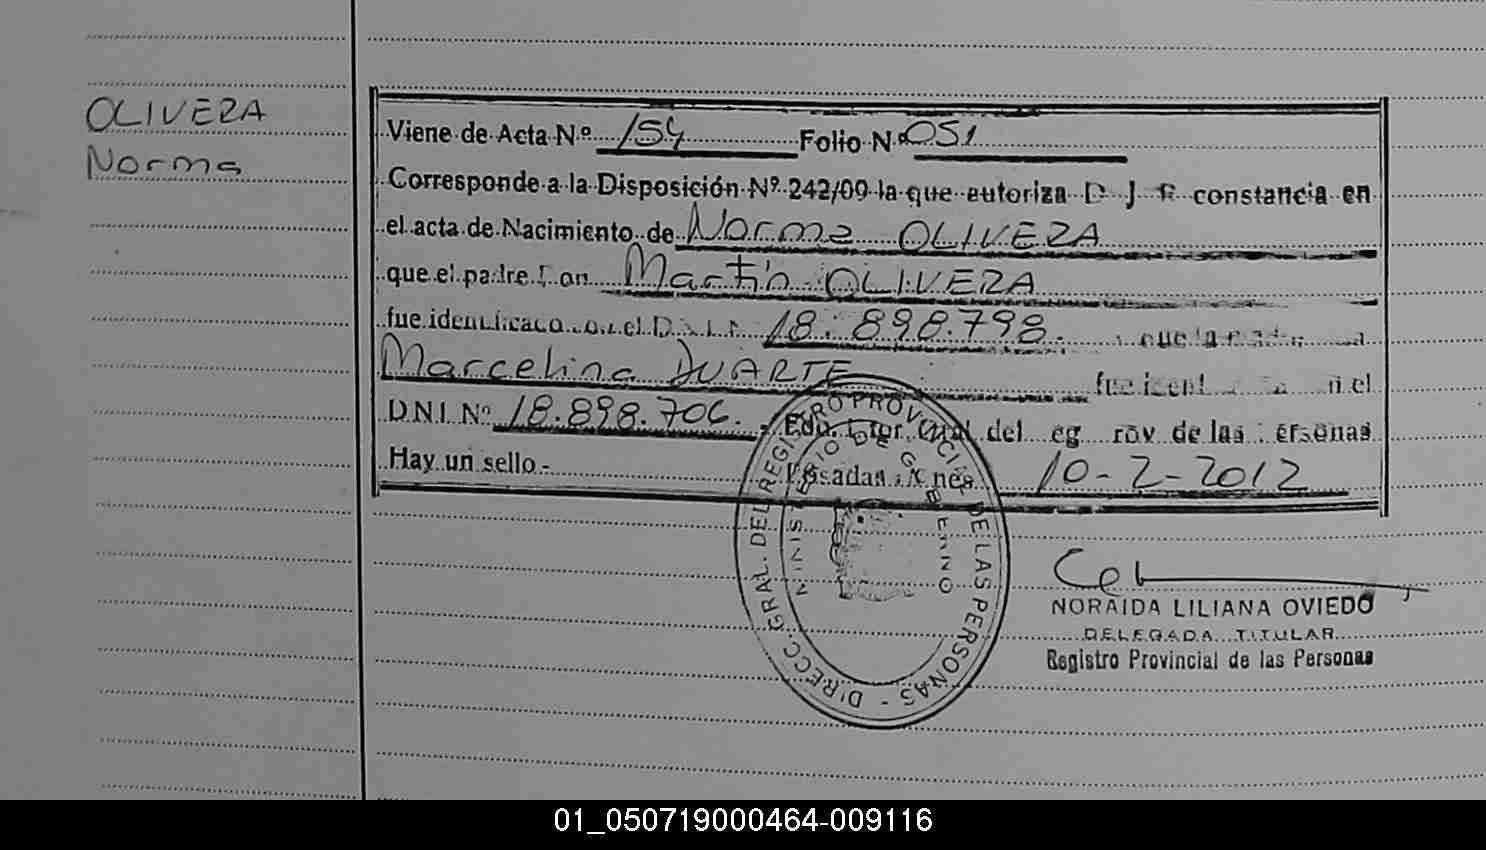 OLIVERA
Norma
Viene de Acta Nº 154 Folio Nº 051
Corresponde a la Disposición Nº 242/09 la que autoriza D J R constancia en
el acta de Nacimiento de Norma OLIVERA
que el padre Don Martín OLIVERA
fue identificado 18.898.798. que la madre
Marcelina DUARTE fue ident el
D.N.I. Nº 18.898.706. - Fdo. Director Gral del Reg Prov de las Personas
Hay un sello - Posadas, Mnes 10-2-2012
DIRECC. GRAL. DEL REGISTRO PROVINCIAL DE LAS PERSONAS -
MINISTERIO DE GOBIERNO
NORAIDA LILIANA OVIEDO
DELEGADA TITULAR
Registro Provincial de las Personas
01_050719000464-009116